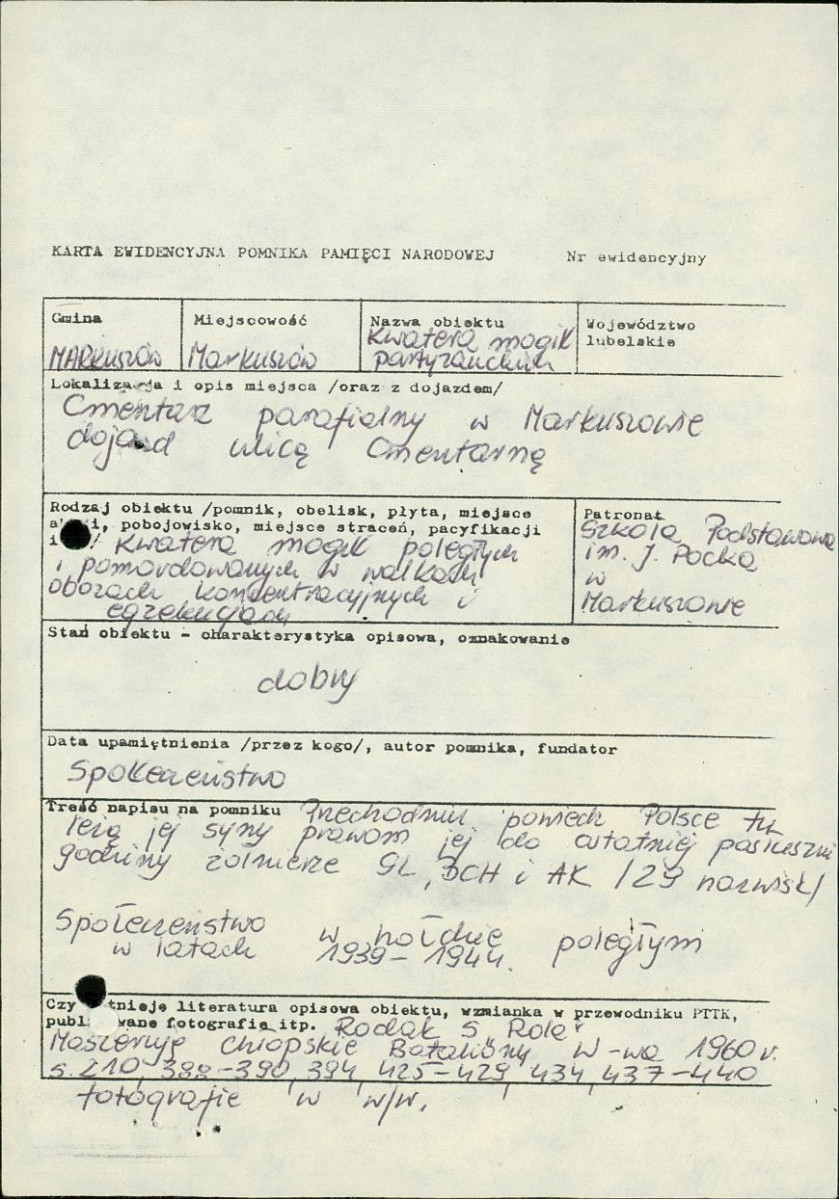 KARTA EWIDENCYJNA POMNIKA PAMIĘCI NARODOWEJ Nr ewidencyjny
Gmina
MARKUSZÓW
Miejscowość
Markuszów
Nazwa obiektu
Kwatera mogił
partyzanckich
Województwo
lubelskie
Lokalizacja i opis miejsca /oraz z dojazdem/
Cmentarz parafialny w Markuszowie
dojazd ulicą Cmentarną
Rodzaj obiektu /pomnik, obelisk, płyta, miejsce
pobojowisko, miejsce straceń, pacyfikacji
i /
Kwatera mogił poległych
i pomordowanych w walkach
obozach koncentracyjnych i
egzekucjach
Patronat
Szkoła Podstawowa
im. J. Pocka
w
Markuszowie
Stan obiektu - charakterystyka opisowa, oznakowanie
dobry
Data upamiętnienia /przez kogo/, autor pomnika, fundator
Społeczeństwo
Treść napisu na pomniku Przechodniu powiedz Polsce tu
leżą jej syny prawom jej do ostatniej posłuszni
godziny żołnierze GL, BCH i AK /29 nazwisk/
Społeczeństwo w hołdzie poległym
w latach 1939-1944.
Czy istnieje literatura opisowa obiektu, wzmianka w przewodniku PTTK,
publikowane fotografie itp. Rodak s Rola"
Maszerują Chłopskie Bataliony W-wa 1960 r.
s. 210, 388-390, 394, 425-429, 434, 437-440
fotografie w w/w.